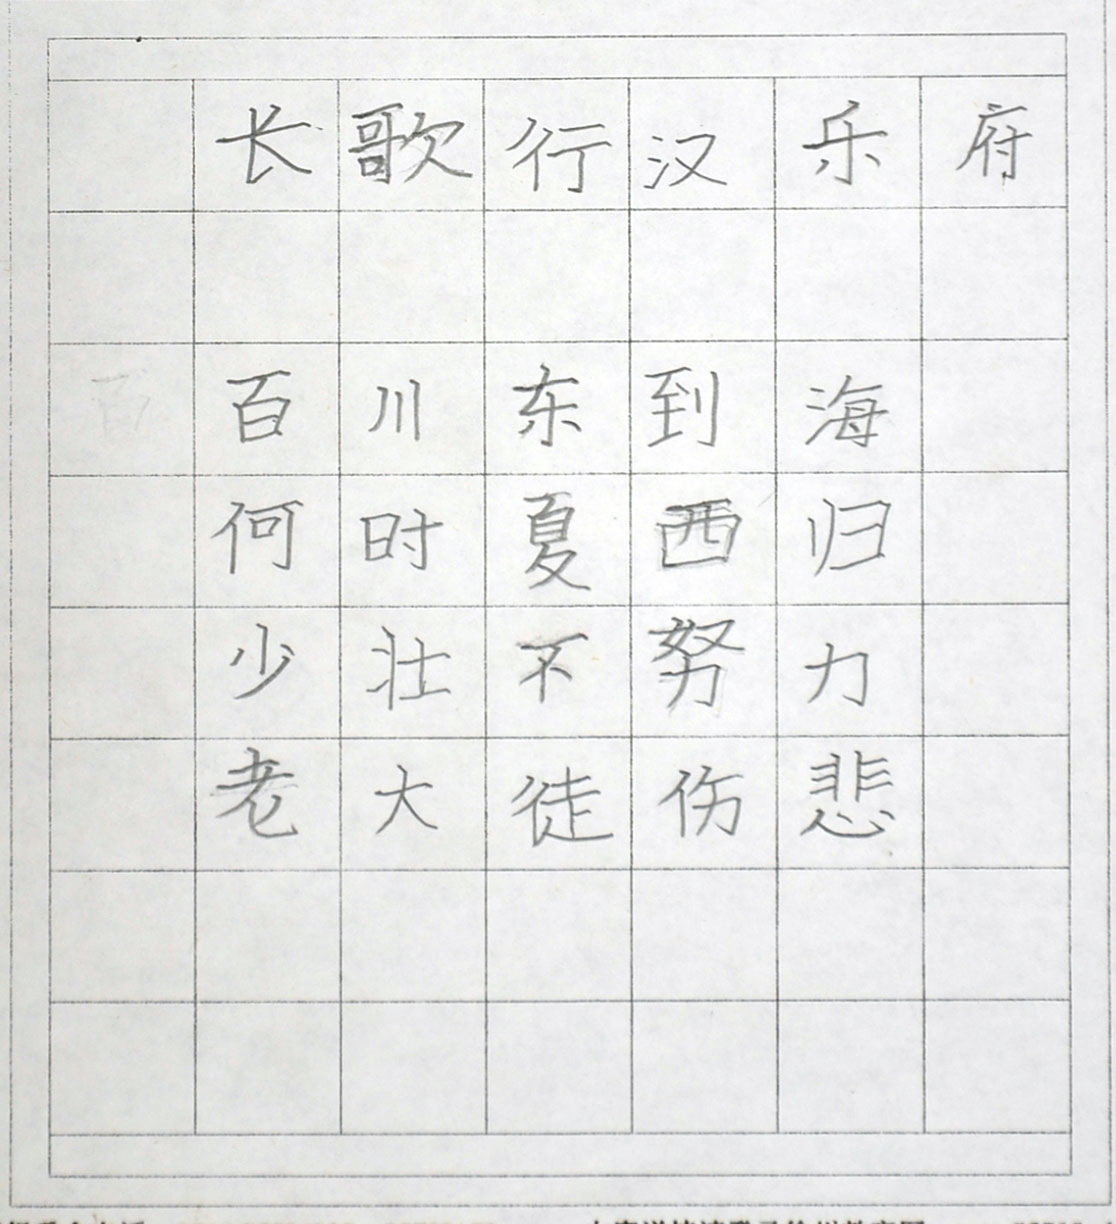 长歌行汉乐府
百川东到海
何时夏西归
少壮不努力
老大徒伤悲